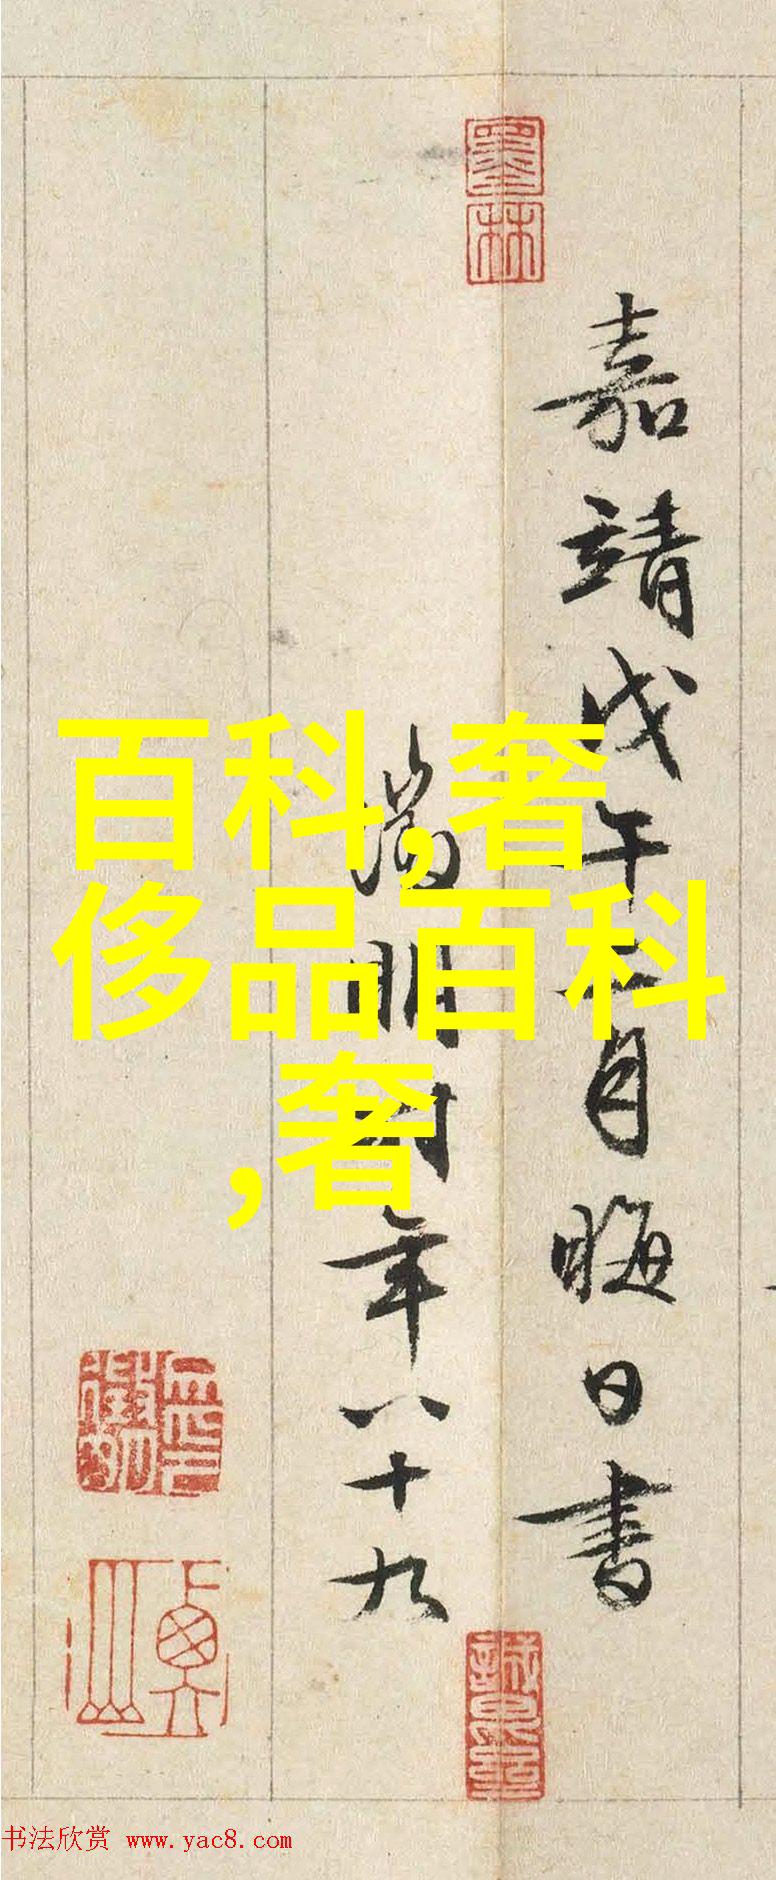 嘉靖戊午二月晦日书
徵明时年八十九
百科,奢
侈品百科
,奢
墨林
书法欣赏 www.yac8.com